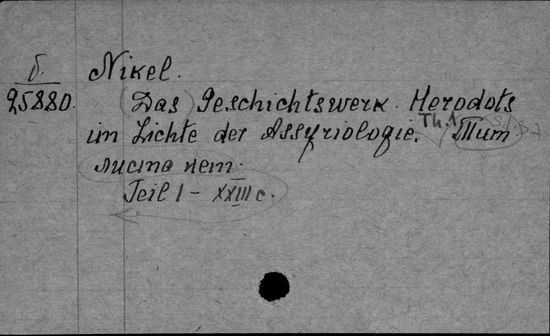 б.
25880.
Nikel.
(Das) Geschichtswerk. Herodots
im Lichte der Assyriologie. Th. 1 Тит
листа нет.
Teil I - XXIII c.